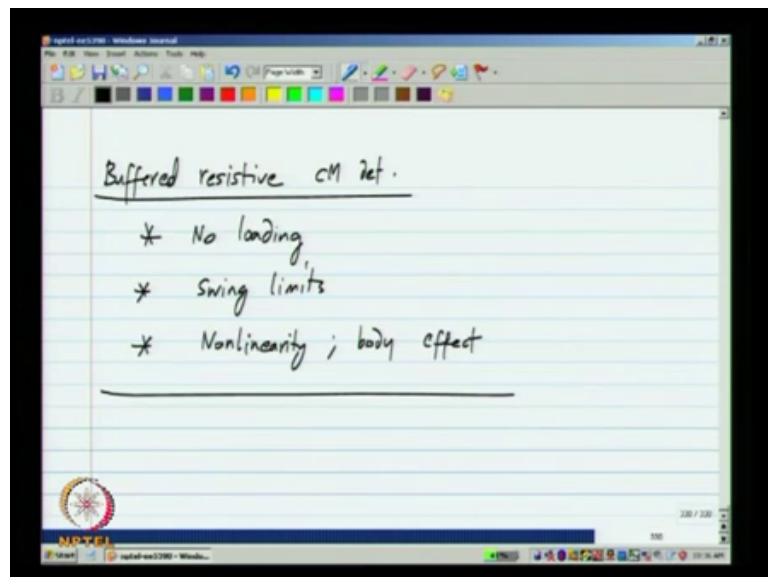 nptel-ee5390 - Windows Journal
File Edit View Insert Actions Tools Help
Page Width
B I
Buffered resistive CM det.
* No loading,
* Swing limits
* Nonlinearity ; body effect
330 / 330
330
NPTEL
Start nptel-ee5390 - Windo... 10:36 AM